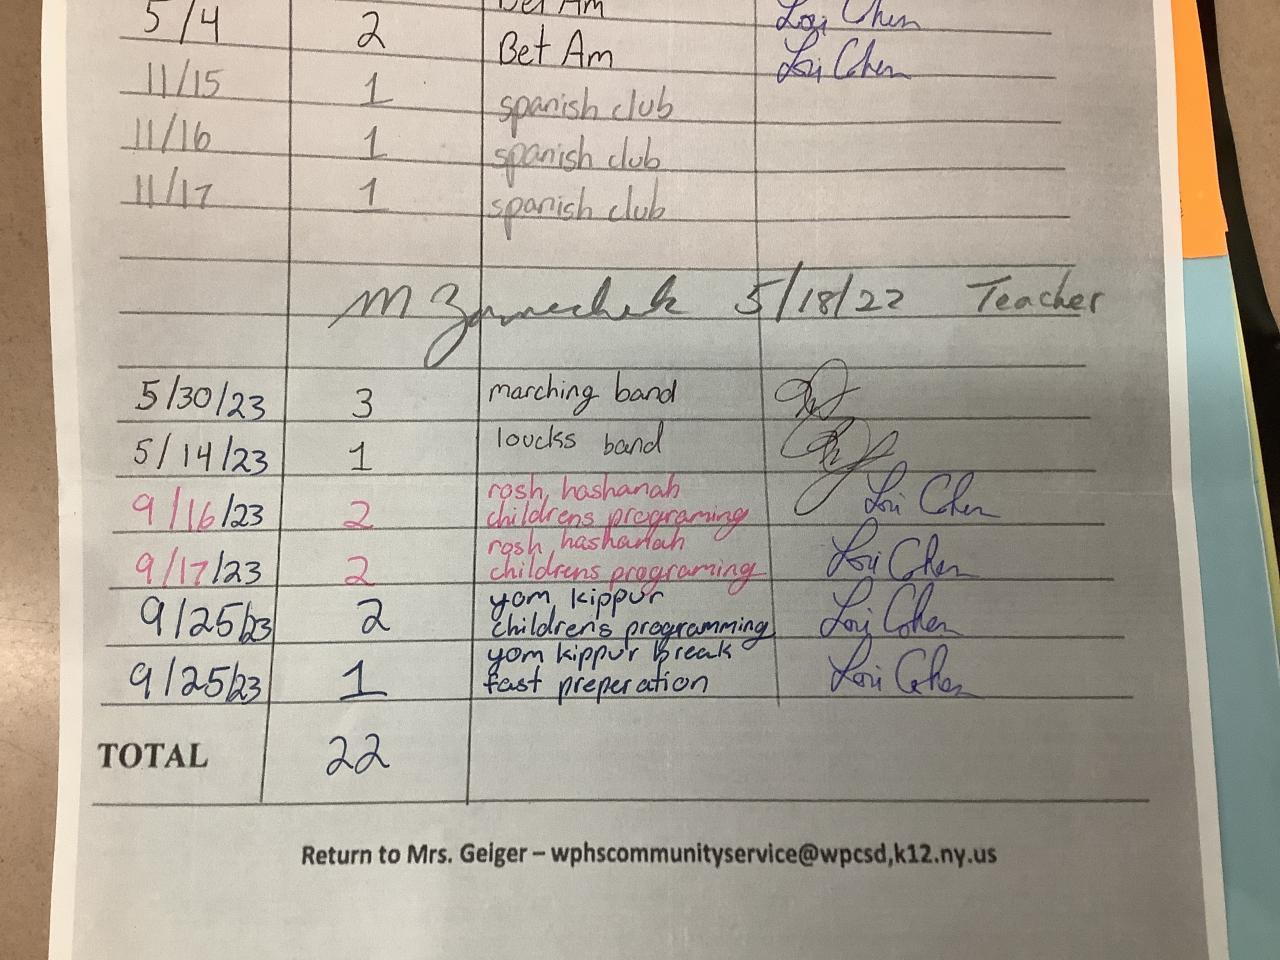 Bet Am Lori Cohen
5/4 2 Bet Am Lori Cohen
11/15 1 spanish club
11/16 1 spanish club
11/17 1 spanish club
M 5/18/22 Teacher
5/30/23 3 marching band
5/14/23 1 loucks band
9/16/23 2 rosh hashanah
childrens programing Lori Cohen
9/17/23 2 rosh hashanah
childrens programing Lori Cohen
9/25/23 2 yom kippur
childrens programming Lori Cohen
9/25/23 1 yom kippur break
fast preperation Lori Cohen
TOTAL 22
Return to Mrs. Geiger – wphscommunityservice@wpcsd,k12.ny.us